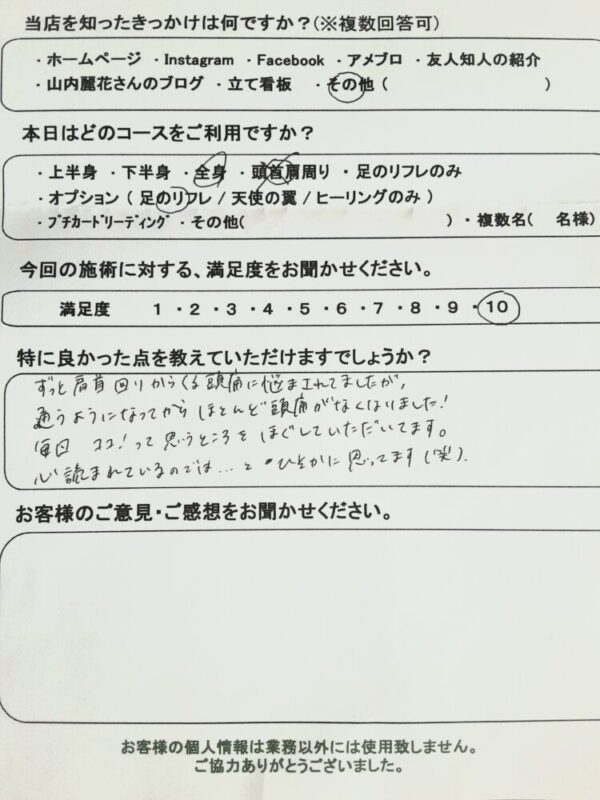 当店を知ったきっかけは何ですか？(※複数回答可)
・ホームページ ・Instagram ・Facebook ・アメブロ ・友人知人の紹介
・山内麗花さんのブログ ・立て看板 ・その他（ ）
本日はどのコースをご利用ですか？
・上半身 ・下半身 ・全身 ・頭首肩周り ・足のリフレのみ
・オプション（ 足のリフレ / 天使の翼 / ヒーリングのみ ）
・プチカードリーディング ・その他( ) ・複数名( 名様)
今回の施術に対する、満足度をお聞かせください。
満足度 1 ・2 ・3 ・4 ・5 ・6 ・7 ・8 ・9 ・10
特に良かった点を教えていただけますでしょうか？
ずっと肩首回りからくる頭痛に悩まされてましたが、
通うようになってからほとんど頭痛がなくなりました！
毎回 ココ！って思うところをほぐしていただいてます。
心読まれているのでは…と ひそかに思ってます(笑).
お客様のご意見・ご感想をお聞かせください。
お客様の個人情報は業務以外には使用致しません。
ご協力ありがとうございました。